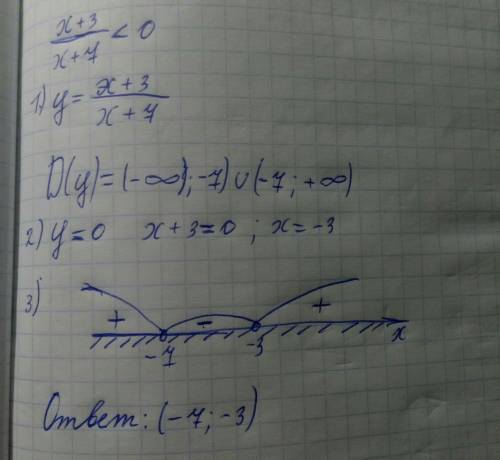 x+3/x+7 < 0
1) y = x+3/x+7
D(y)=(-∞); -7) ∪ (-7; +∞)
2) y=0 x+3=0; x=-3
3)
+ - +
-7 -3 x
Ответ: (-7; -3)